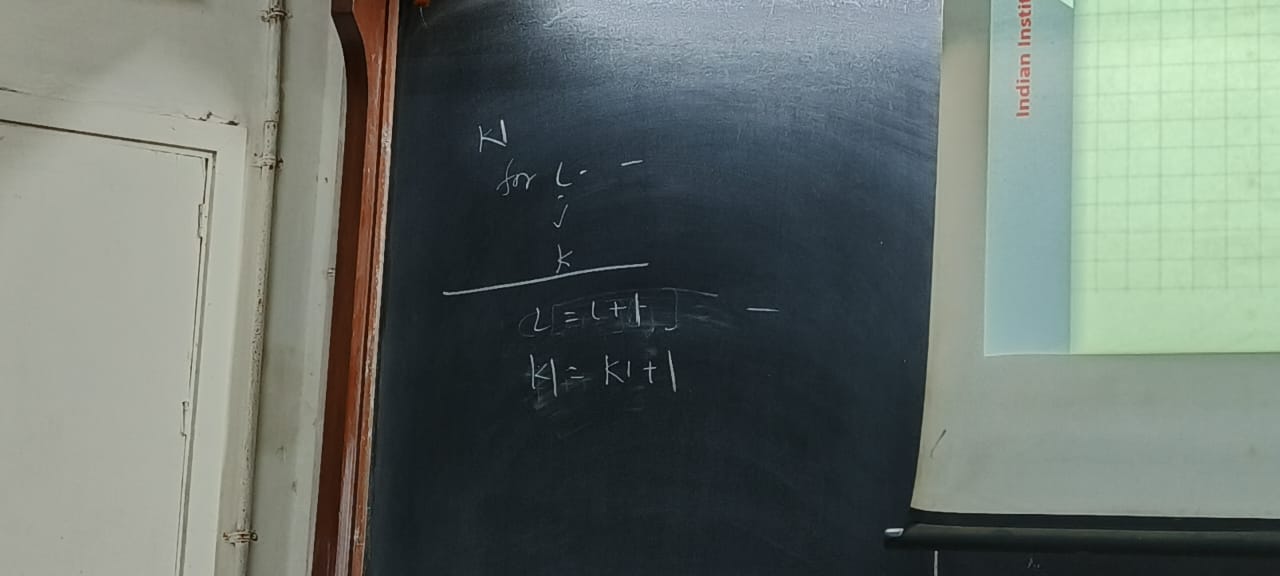 K1
for i. -
j
k
i = i+1 -
K1 = K1+1
Indian Instit